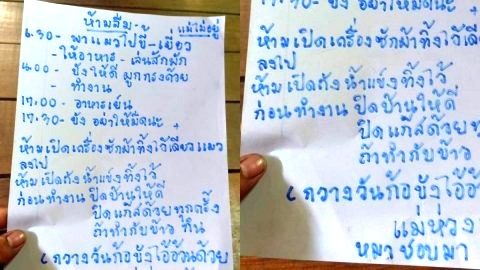 ห้ามลืม.. แม่ไม่อยู่
6.30- พาแมวไปขี้-เยี่ยว
-ให้อาหาร - เล่นสักพัก
- ขังให้ดี ผูกกรงด้วย
- ทำงาน
17.00 - อาหารเย็น
17.30- ขัง อย่าให้มืดนะ
ห้ามเปิดเครื่องซักผ้าทิ้งไว้เดี๋ยวแมว
ลงไป
ห้ามเปิดถังน้ำแข็งทิ้งไว้
ก่อนทำงาน ปิดบ้านให้ดี
ปิดแก๊สด้วยทุกครั้ง
ถ้าทำกับข้าว กิน
(กวางวันก้อขังไอ้อ้วนด้วย
17.30- ขัง อย่าให้มืดนะ
ห้ามเปิดเครื่องซักผ้าทิ้งไว้เดี
ลงไป
ห้ามเปิดถังน้ำแข็งทิ้งไว้
ก่อนทำงาน ปิดบ้านให้ดี
ปิดแก๊สด้วยท
ถ้าทำกับข้าว
(กวางวันก้อขังไอ้อ้
แม่ห่วง
หมาชอบมา